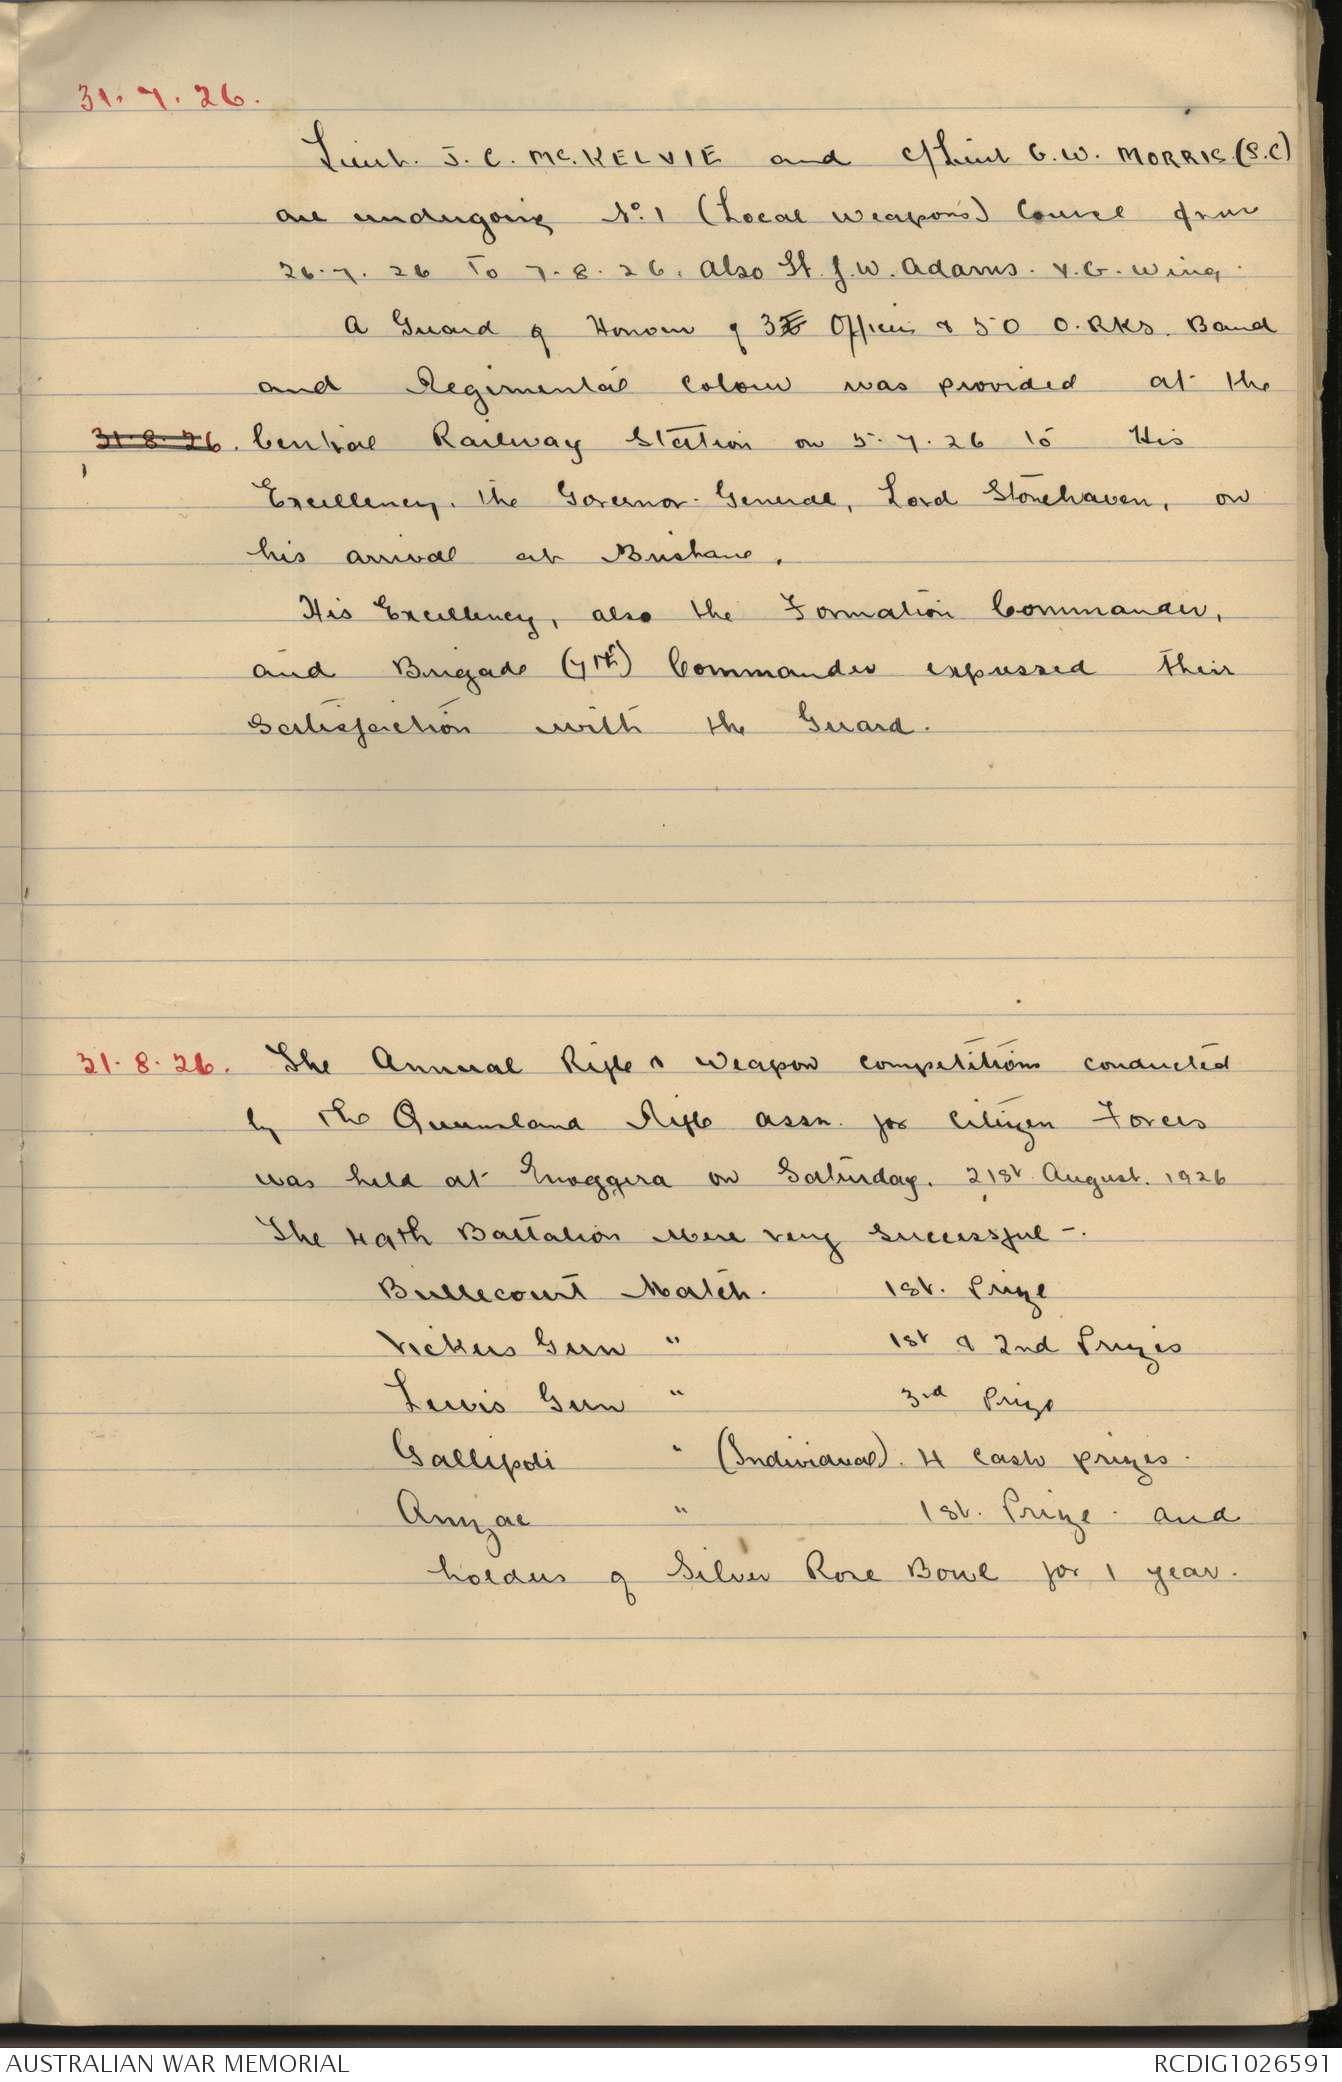 31.7.26.
Lieut. J. C. McKELVIE and C/Lieut G. W. MORRIS. (S.C)
are undergoing No. 1 (Local Weapons) Course from
26.7.26 to 7.8.26. Also Lt. J. W. Adams. V.G. Wing.
A Guard of Honour of 3 Officers & 50 O.RKS. Band
and Regimental Colour was provided at the
31.8.26. Central Railway Station on 5.7.26 to His
Excellency. the Governor-General, Lord Stonehaven, on
his arrival at Brisbane.
His Excellency, also the Formation Commander,
and Brigade (7th) Commander expressed their
satisfaction with the Guard.
31.8.26. The Annual Rifle & Weapon competitions conducted
by the Queensland Rifle Assn. for Citizen Forces
was held at Enoggera on Saturday. 21st August. 1926
The 49th Battalion were very successful -.
Bullecourt Match. 1st. Prize
Vickers Gun " 1st & 2nd Prizes
Lewis Gun " 3rd Prize
Gallipoli " (Individual). 4 cash prizes.
Anzac " 1st. Prize. and
holders of Silver Rose Bowl for 1 year.
AUSTRALIAN WAR MEMORIAL
RCDIG1026591